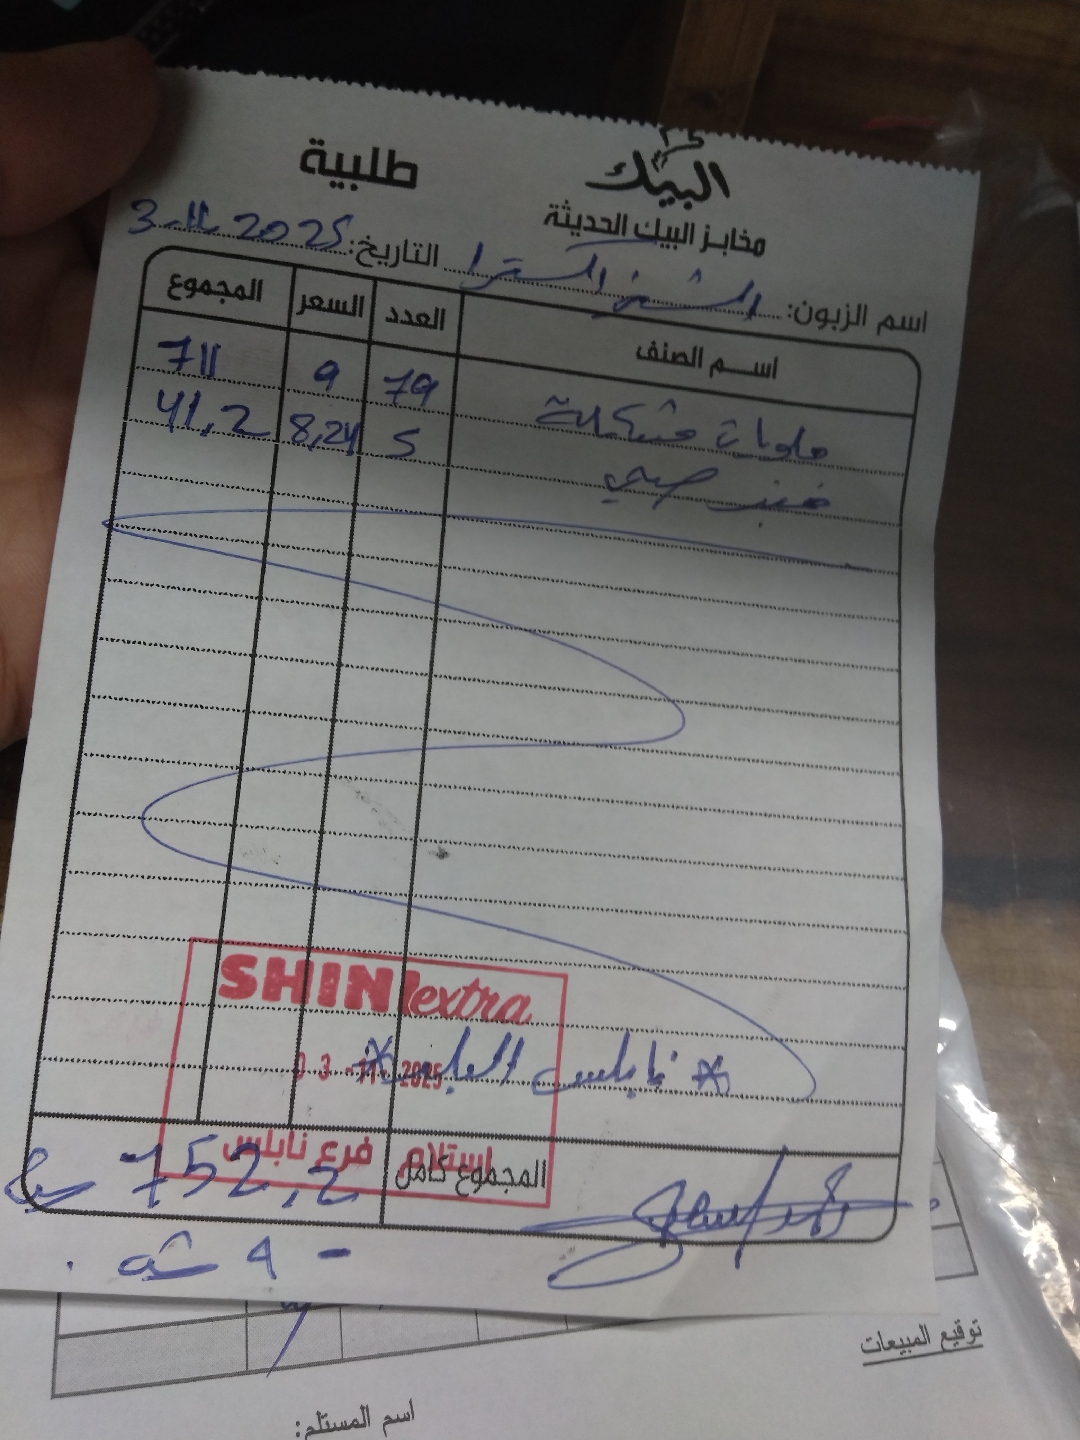 البيك
طلبية
مخابز البيك الحديثة
اسم الزبون: التاريخ: 3-11-2025
اسم الصنف العدد السعر المجموع
حلويات مشكلة 79 9 711
خبز صحي 5 8,24 41,2
SHINI extra
03 -11- 2025
* نابلس *
استلام فرع نابلس
المجموع كامل 752,2
- 9
توقيع المبيعات
اسم المستلم: